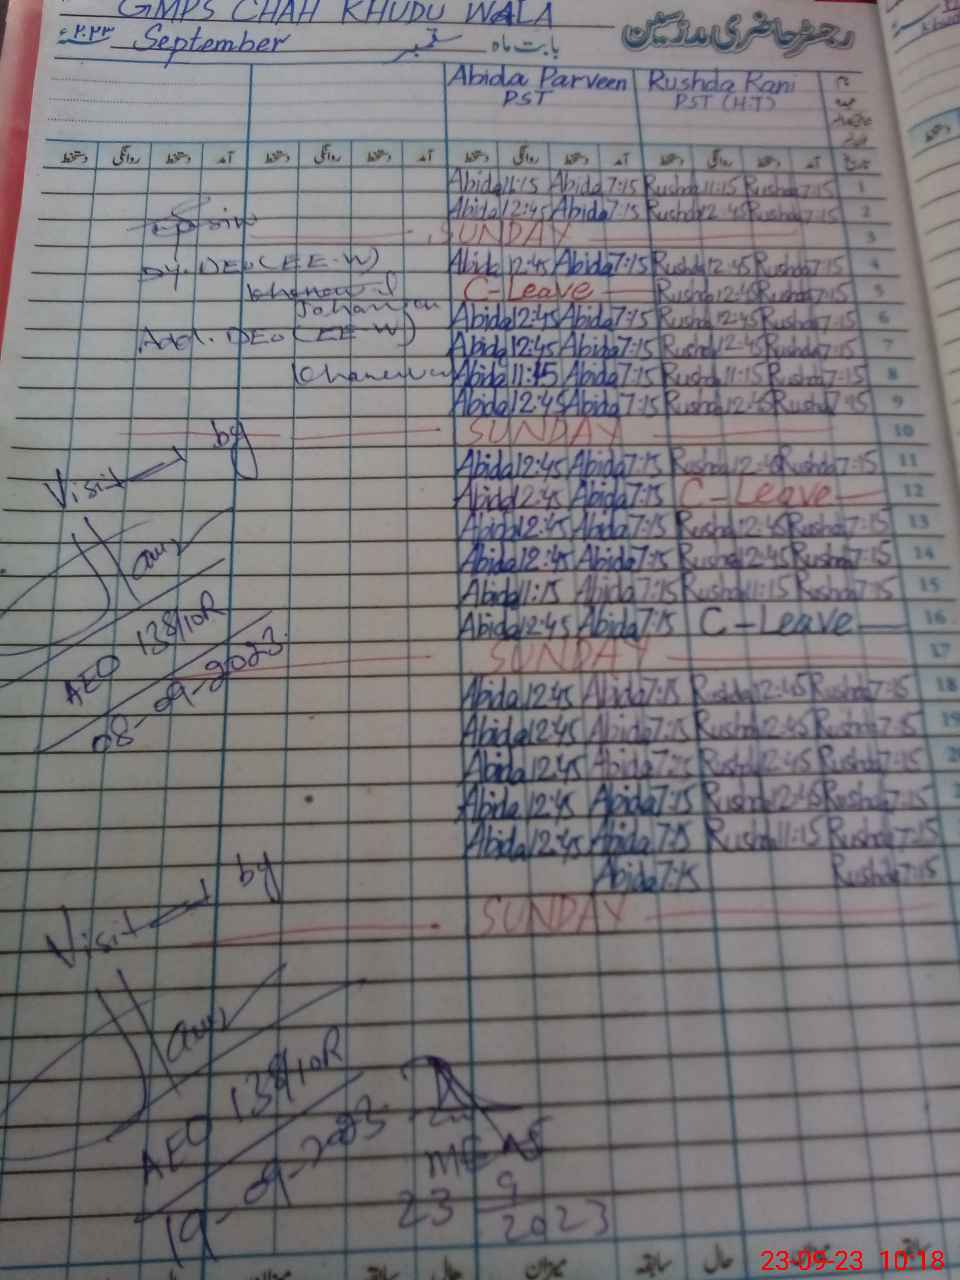 GMPS CHAH KHUDU WALA
رجسٹر حاضری مدرسین
بابت ماہ ستمبر September ۲۰۲۳ء
Abida Parveen Rushda Rani
PST PST (H.T)
Abida 11:15 Abida 7:15 Rushda 11:15 Rushda 7:15 1
Abida 12:45 Abida 7:15 Rushda 12:45 Rushda 7:15 2
SUNDAY 3
Dy. DEO (EE-W) Abida 12:45 Abida 7:15 Rushda 12:45 Rushda 7:15 4
Khanewal C-Leave Rushda 12:45 Rushda 7:15 5
Jahanian Abida 12:45 Abida 7:15 Rushda 12:45 Rushda 7:15 6
Add. DEO (EE-W) Abida 12:45 Abida 7:15 Rushda 12:45 Rushda 7:15 7
Khanewal Abida 11:15 Abida 7:15 Rushda 11:15 Rushda 7:15 8
Abida 12:45 Abida 7:15 Rushda 12:45 Rushda 7:15 9
SUNDAY 10
Abida 12:45 Abida 7:15 Rushda 12:45 Rushda 7:15 11
Abida 12:45 Abida 7:15 C-Leave 12
Abida 12:45 Abida 7:15 Rushda 12:45 Rushda 7:15 13
Abida 12:45 Abida 7:15 Rushda 12:45 Rushda 7:15 14
Abida 11:15 Abida 7:15 Rushda 11:15 Rushda 7:15 15
Abida 12:45 Abida 7:15 C-Leave 16
SUNDAY 17
Abida 12:45 Abida 7:15 Rushda 12:45 Rushda 7:15 18
Abida 12:45 Abida 7:15 Rushda 12:45 Rushda 7:15 19
Abida 12:45 Abida 7:15 Rushda 12:45 Rushda 7:15
Abida 12:45 Abida 7:15 Rushda 12:45 Rushda 7:15
Abida 12:45 Abida 7:15 Rushda 11:15 Rushda 7:15
Abida 7:15 Rushda 7:15
SUNDAY
Visit by
AEO 138/10R
08-09-2023
Visit by
AEO 138/10R
19-09-2023
23 9
2023
23-09-23 10:18